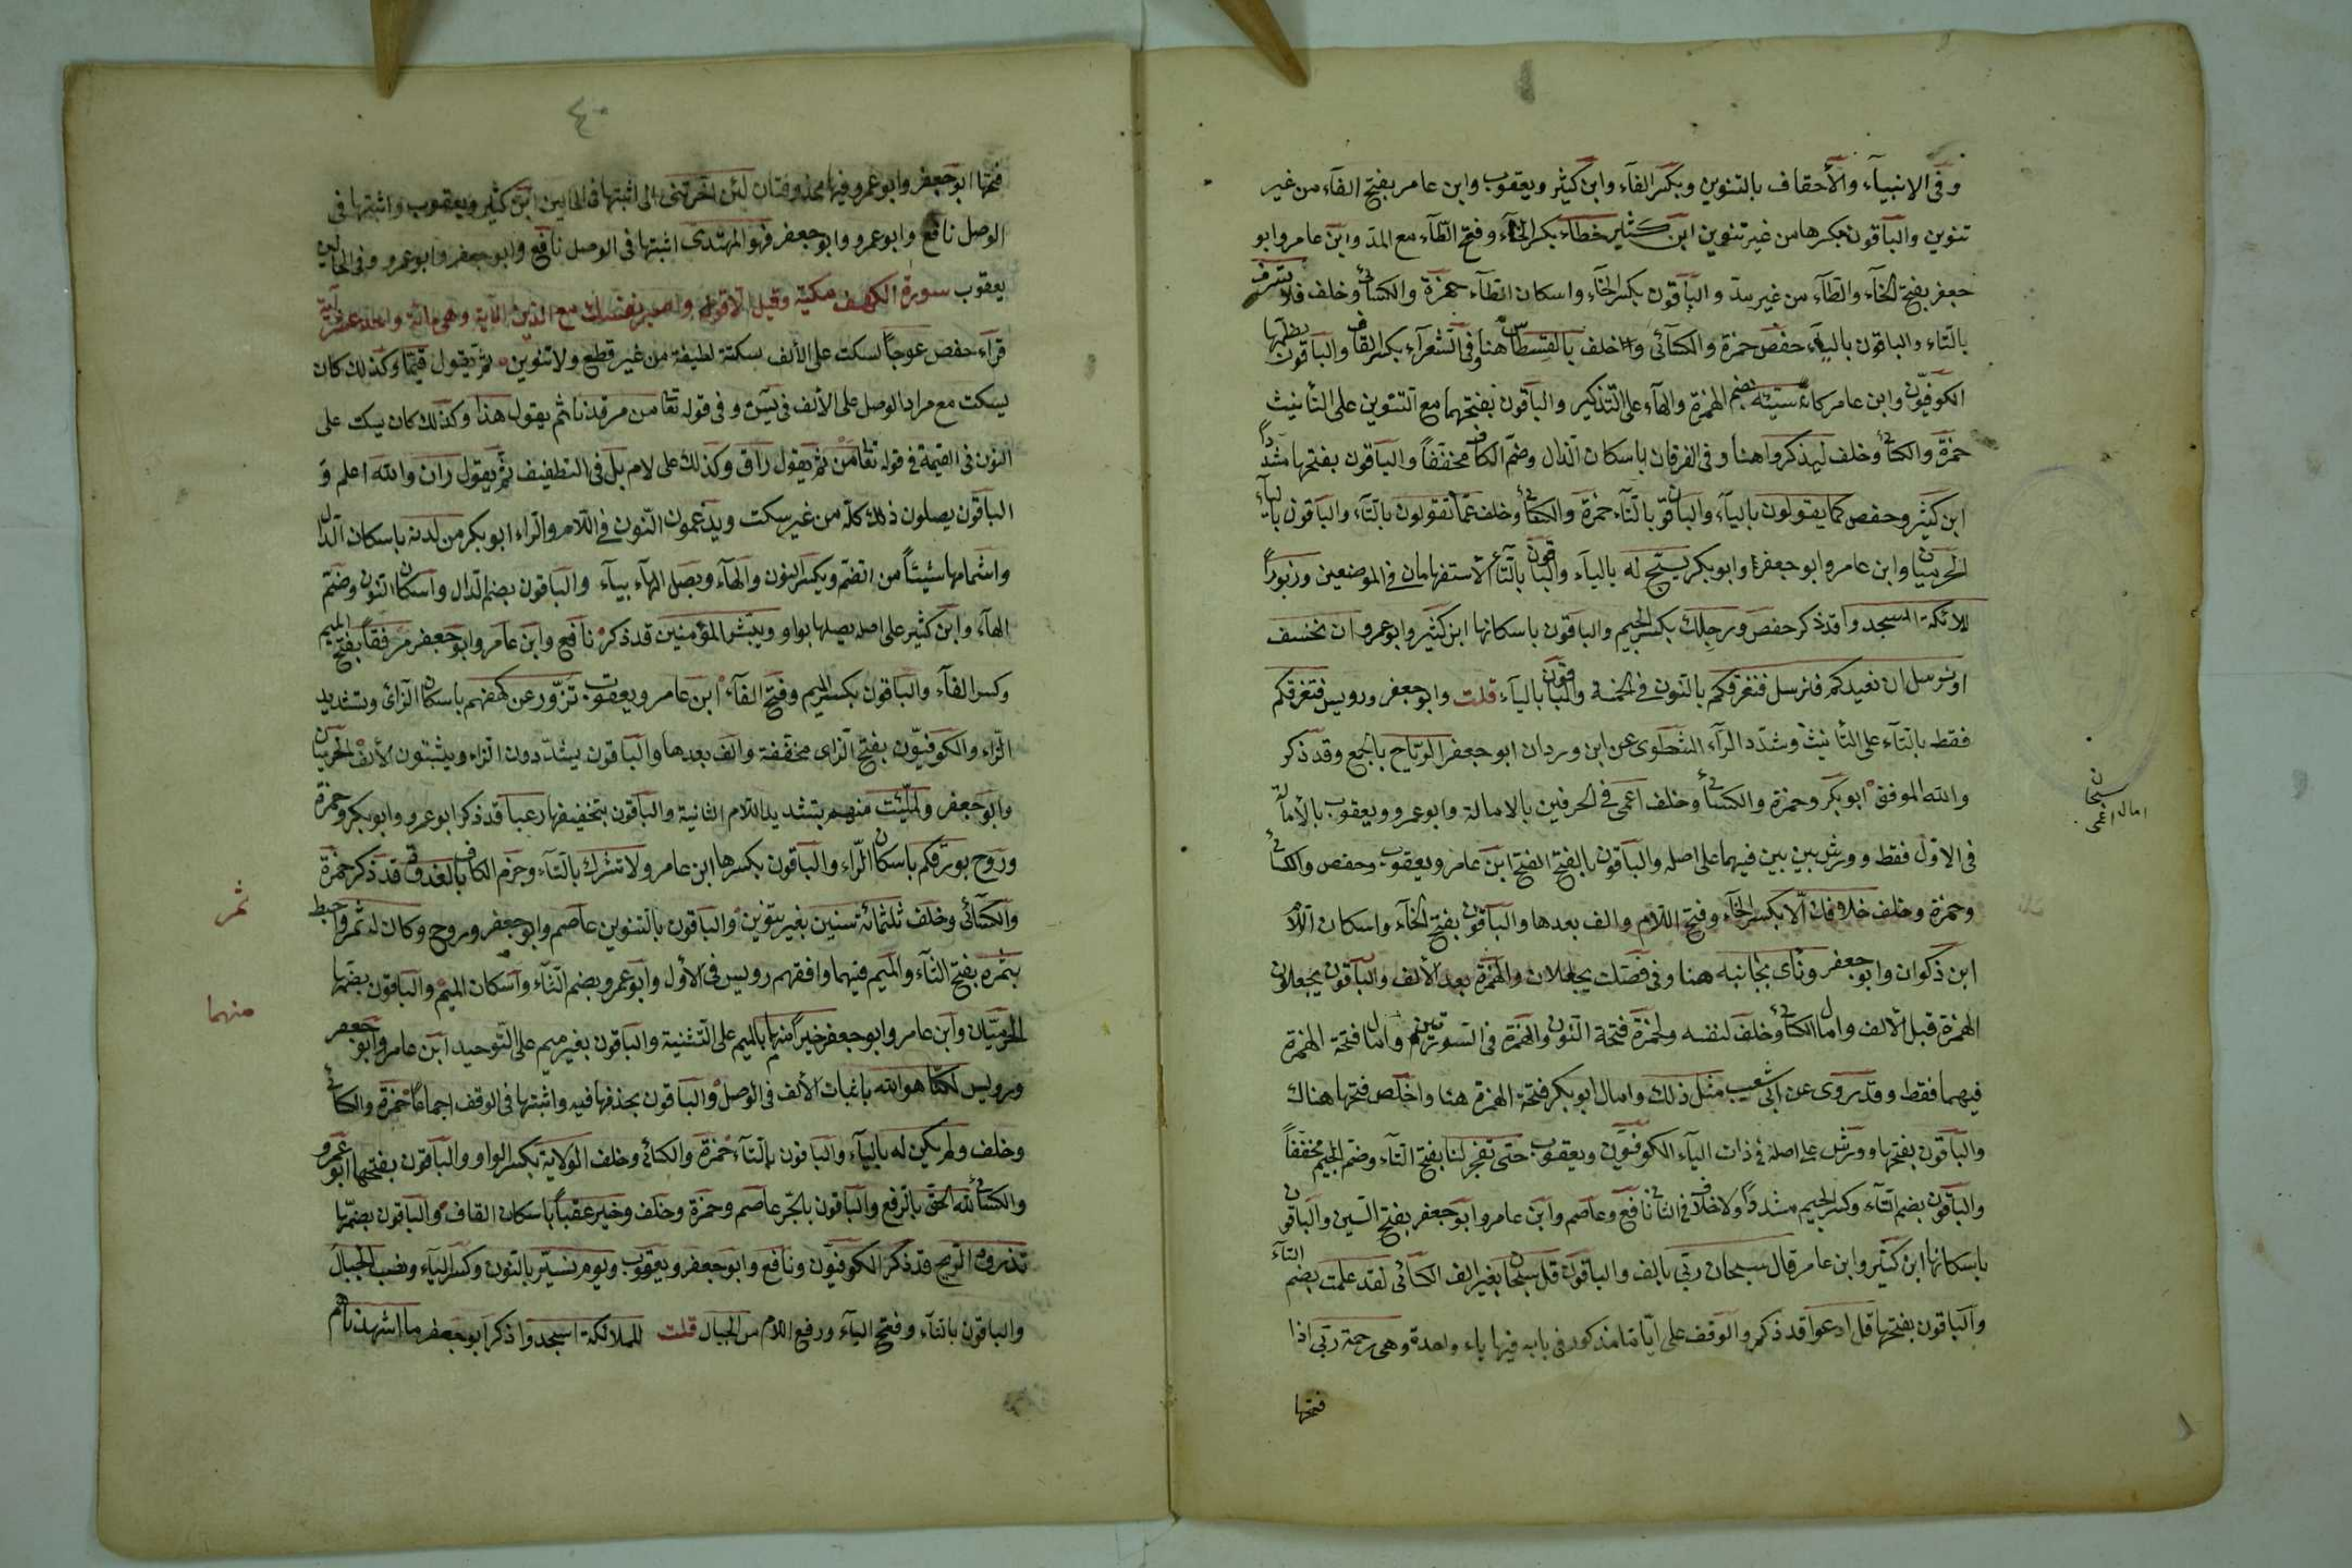 وفى الانبيآء والأحقاف بالتنوين وبكسر الفآء وابن كثير ويعقوب وابن عامر بفتح الفآء من غير
تنوين والباقون بكسرها من غير تنوين ابن كثير خطاء بكسر الخآء وفتح الطآء مع المد وابن عامر وابو
جعفر بفتح الخآء والطآء من غير مد والباقون بكسر الخآء واسكان الطآء حمزة والكسائى وخلف فلا تسرف
بالتاء والباقون باليآء حفص وحمزة والكسآئى وخلف بالقسطاس هنا وفى الشعرآء بكسر القاف والباقون بضمها
الكوفيون وابن عامر كان سيئه بضم الهمزة والهآء على التذكير والباقون بفتحهما مع التنوين على التأنيث
حمزة والكسائى وخلف ليذكروا هنا وفى الفرقان باسكان الذال وضم الكاف مخففاً والباقون بفتحهما مشدداً
ابن كثير وحفص كما يقولون باليآء والباقون بالتآء حمزة والكسائى وخلف عما تقولون بالتآء والباقون باليآء
الحرميان وابن عامر وابو جعفر وابو بكر يسبح له باليآء والباقون بالتآء الاستفهامان فى الموضعين وزبوراً
للملائكة اسجدوا قد ذكر حفص ورجلك بكسر الجيم والباقون باسكانها ابن كثير وابو عمرو ان نخسف
او نرسل ان نعيدكم فنرسل فنغرقكم بالنون فى الخمسة والباقون باليآء قلت وابو جعفر ورويس فتغرقكم
فقط بالتآء على التأنيث وشدد الرآء الشطوى عن ابن وردان ابو جعفر الرياح بالجمع وقد ذكر
والله الموفق ابو بكر وحمزة والكسائى وخلف اعمى فى الحرفين بالامالة وابو عمرو ويعقوب بالأمالة
فى الاول فقط وورش بين بين فيهما على اصله والباقون بالفتح ابن عامر ويعقوب وحفص والكسائى
وحمزة وخلف خلافك الا بكسر الخآء وفتح اللام والف بعدها والباقون بفتح الخآء واسكان اللام
ابن ذكوان وابو جعفر ونأى بجانبه هنا وفى فصلت يجعلان والهمزة بعد الألف والباقون يجعلون
الهمزة قبل الألف وامال الكسائى وخلف لنفسه ولحمزة فتحة النون والهمزة فى السورتين وامال فتحة الهمزة
فيهما فقط وقد روى عن ابى شعيب مثل ذلك وامال ابو بكر فتحة الهمزة هنا واخلص فتحها هناك
والباقون بفتحهما وورش على اصله فى ذات اليآء الكوفيون ويعقوب حتى تفجر لنا بفتح التآء وضم الجيم مخففاً
والباقون بضم التآء وكسر الجيم مشدداً ولا خلاف فى الثانى نافع وعاصم وابن عامر وابو جعفر بفتح السين والباقون
باسكانها ابن كثير وابن عامر قال سبحان ربى بالف والباقون قل سبحان بغير الف الكسائى لقد علمت بضم التآء
والباقون بفتحها قل ادعوا قد ذكر والوقف على اياما مذكور فى بابه فيها ياء واحدة وهى رحمة ربى اذا
فتحها
سبحان
امال اعمى
٤٠
فتحها ابو جعفر وابو عمرو وفيها محذوفتان لئن اخرتنى الى اثبتها فى الحالين ابن كثير ويعقوب واثبتها فى
الوصل نافع وابو عمرو وابو جعفر فهو المهتدى اثبتها فى الوصل نافع وابو جعفر وابو عمرو وفى الحالين
يعقوب سورة الكهف مكية وقيل الا قوله واصبر نفسك مع الذين الاية وهى مائة واحدى عشر آية
قراء حفص عوجاً سكت على الألف سكتة لطيفة من غير قطع ولا تنوين ثم يقول قيماً وكذلك كان
يسكت مع مراد الوصل على الألف فى يس وفى قوله تعا من مرقدنا ثم يقول هذا وكذلك كان يسكت على
النون فى القيمة فى قوله تعا من ثم يقول راق وكذلك على لام بل فى التطفيف ثم يقول ران والله اعلم و
الباقون يصلون ذلك كله من غير سكت ويدغمون النون فى اللام والراء ابو بكر من لدنه باسكان الدال
واشمامها شيئاً من الضم وبكسر النون والهآء ويصل الهآء بيآء والباقون بضم الدال واسكان النون وضم
الهآء وابن كثير على اصله يصلها بواو ويبشر المؤمنين قد ذكر نافع وابن عامر وابو جعفر مرفقاً بفتح الميم
وكسر الفآء والباقون بكسر الميم وفتح الفآء ابن عامر ويعقوب تزور عن كهفهم باسكان الزاى وتشديد
الراء والكوفيون بفتح الزاى مخففة والف بعدها والباقون يشددون الزاء ويثبتون الألف الحرميان
وابو جعفر ولملئت منهم بتشديد اللام الثانية والباقون بتخفيفها رعبا قد ذكر ابو عمرو وابو بكر وحمزة
وروح بورقكم باسكان الراء والباقون بكسرها ابن عامر ولا تشرك بالتآء وجزم الكاف بالغدوة قد ذكر حمزة
والكسآئى وخلف ثلثمائة سنين بغير تنوين والباقون بالتنوين عاصم وابو جعفر وروح وكان له ثمر واحيط
بثمره بفتح الثآء والميم فيهما وافقهم رويس فى الأول وابو عمرو بضم الثآء واسكان الميم والباقون بضمها
الحرميان وابن عامر وابو جعفر خيراً منهما بالميم على التثنية والباقون بغير ميم على التوحيد ابن عامر وابو جعفر
ورويس لكنا هو الله باثبات الألف فى الوصل والباقون بحذفها فيه واثبتها فى الوقف اجماعاً حمزة والكسائى
وخلف ولم يكن له باليآء والباقون بالتآء حمزة والكسائى وخلف الولاية بكسر الواو والباقون بفتحها ابو عمرو
والكسائى لله الحق بالرفع والباقون بالجر عاصم وحمزة وخلف وخير عقباً باسكان القاف والباقون بضمها
تذروه الريح قد ذكر الكوفيون ونافع وابو جعفر ويعقوب ويوم نسير بالنون وكسر اليآء ونصب الجبال
والباقون بالتآء وفتح اليآء ورفع اللام من الجبال قلت للملائكة اسجدوا ذكر ابو جعفر ما اشهدناهم
ثمر
منهما